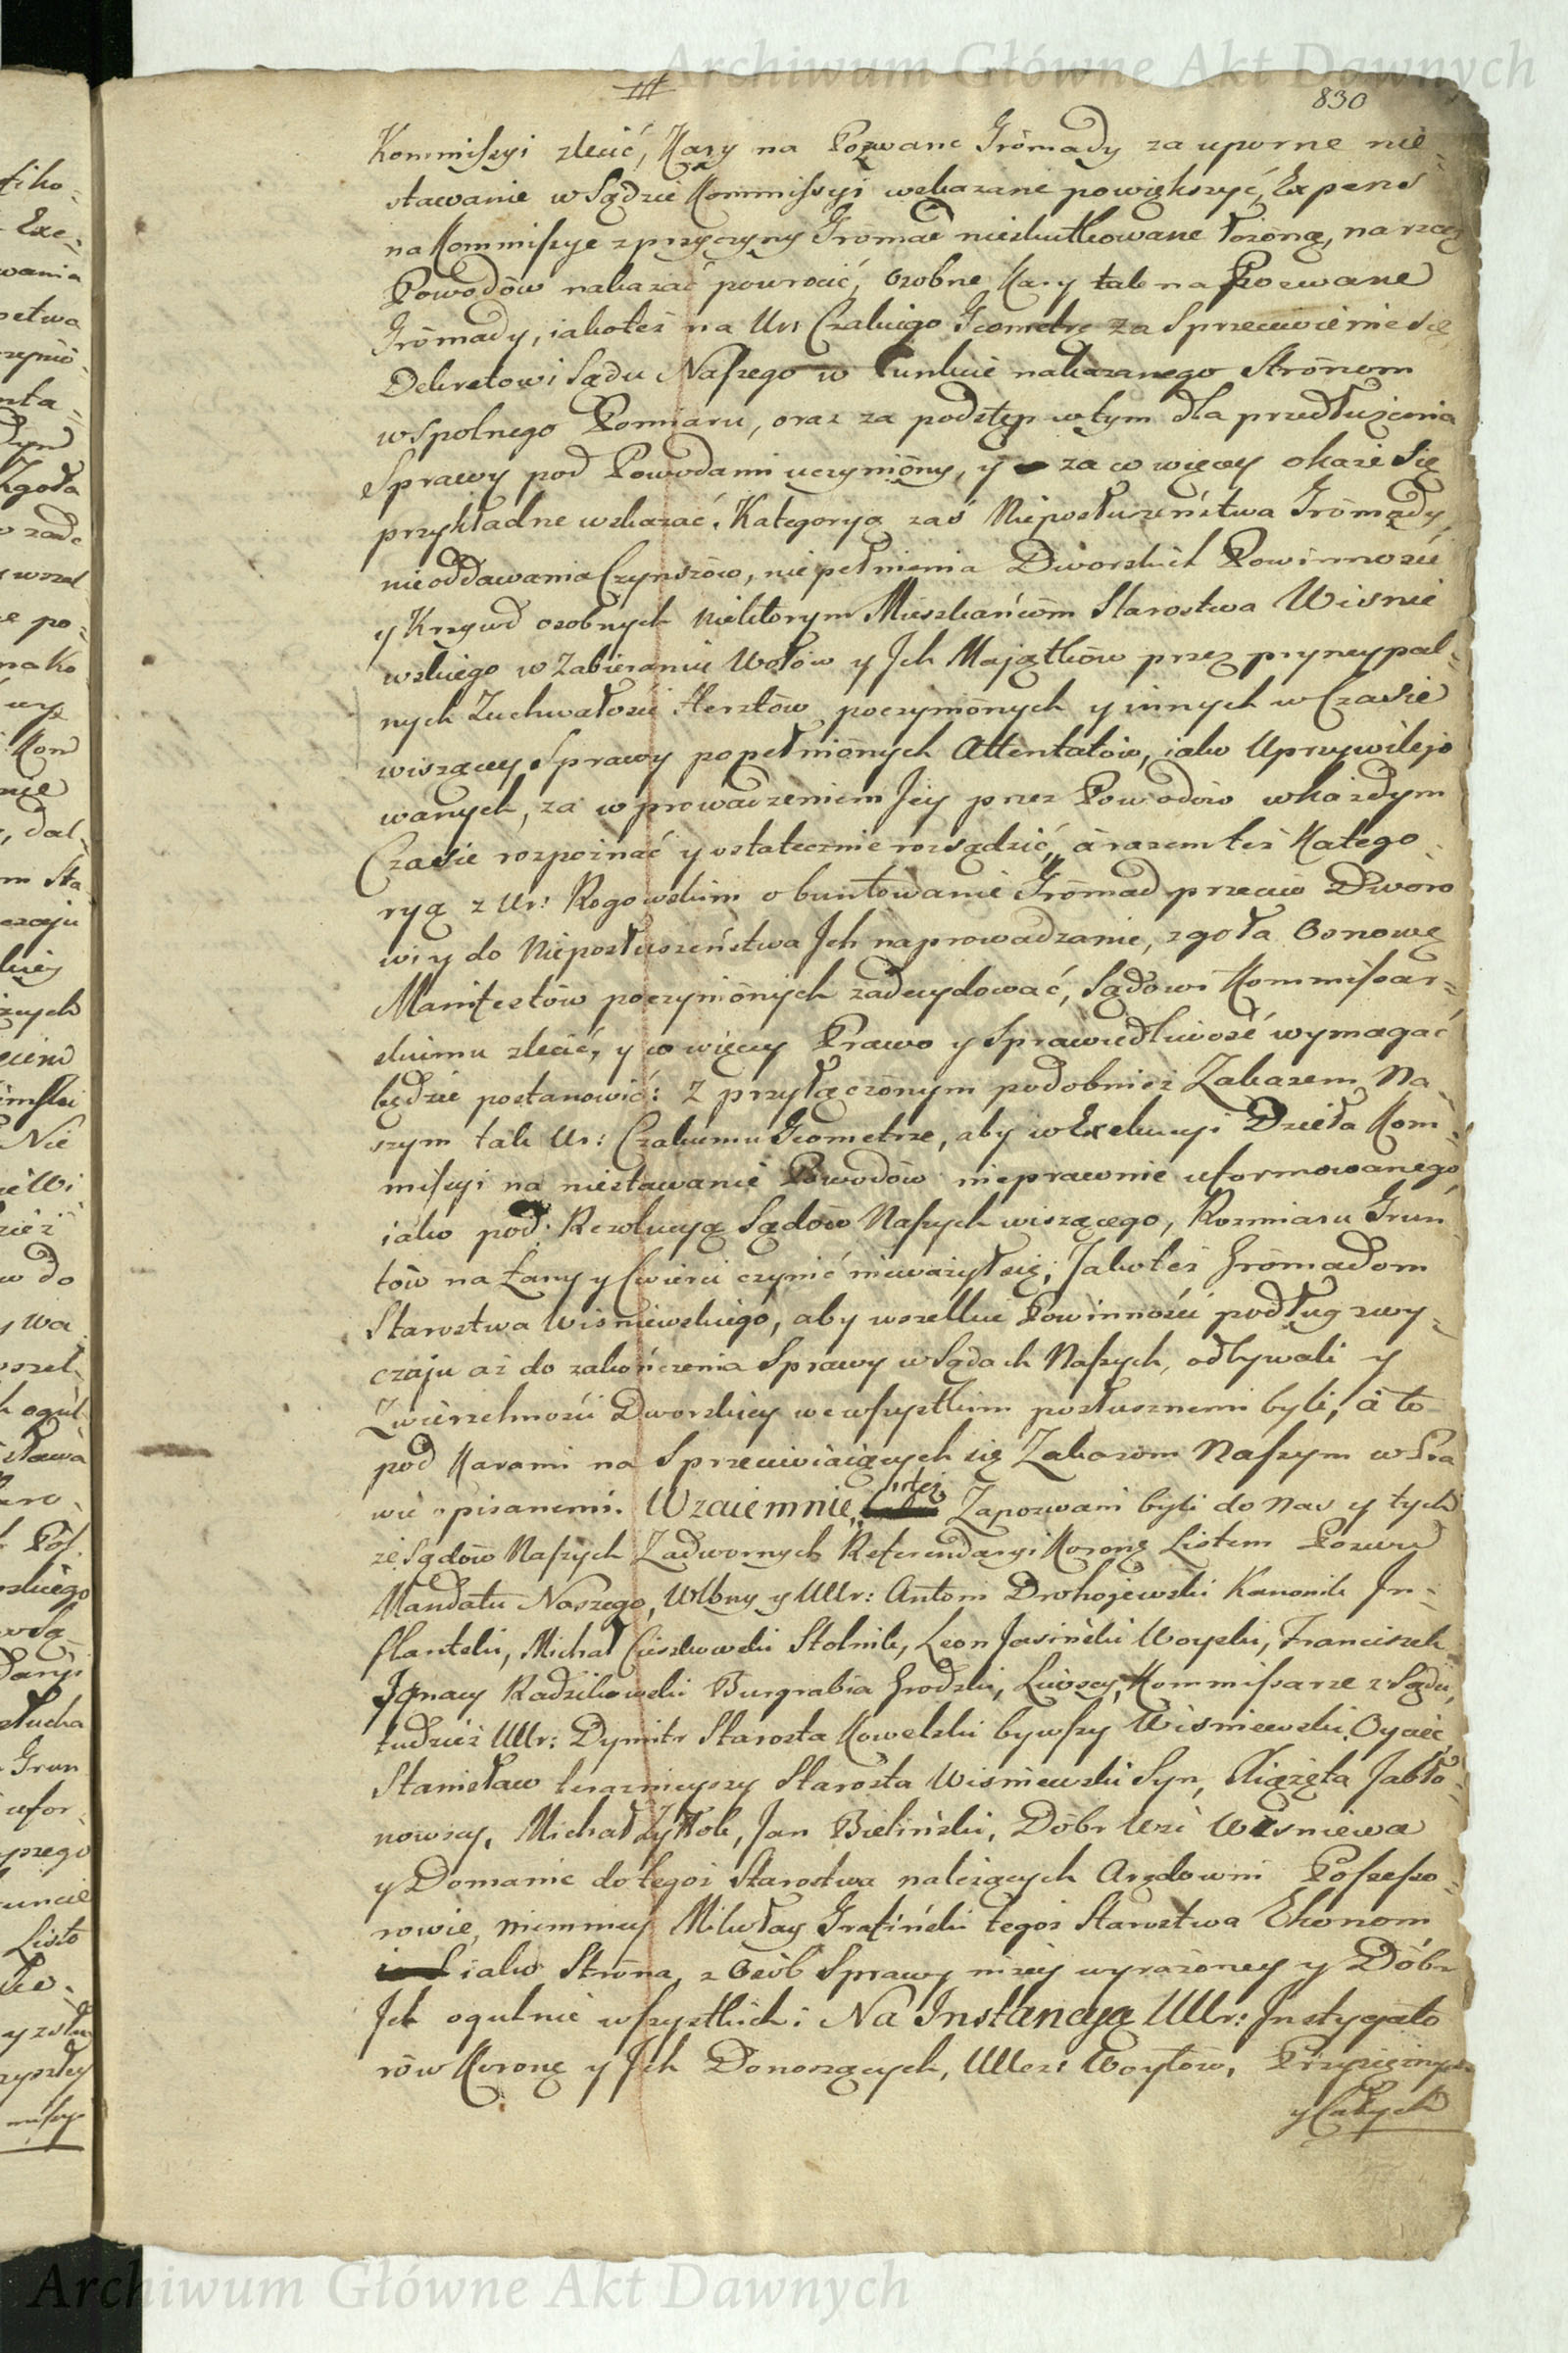 Archiwum Główne Akt Dawnych
III
830
Kommissyi zlecić, Kary na Pozwane Grómady za uporne nie-
stawanie w Sądzie Kommissyi wskazane powiększyć, Expens
na Kommissye z przyczyny Gromad nieskutkowane łożoną, na rzecz
Powodów nakazać powrócić, osobne Kary tak na Pozwane
Grómady, iakoteż na Ur: Czakiego Geometrę za Sprzeciwienie się
Dekretowi Sądu Naszego w Punkcie nakazanego Strónom
wspolnego Pomiaru, oraz za podstęp w tym dla przedłużenia
Sprawy pod Powodami uczynióny, y za co więcey okaże się
przykładne wskazać. Kategoryą zaś Nieposłuszeństwa Grómady,
nieoddawania Czynszów, niepełnienia Dworskich Powinności
y Krzywd osobnych niektorym Mieszkańcóm Starostwa Wisnie
wskiego w Zabieraniu Wołów y Ich Majątków przez pryncypal-
nych Zuchwałości Hersztów poczyniónych y innych w Czasie
wiszącey Sprawy popełniónych Attentatów, iako Uprzywilejo
wanych, za wprowadzeniem Jey przez Powodów w każdym
Czasie rozpoznać y ostatecznie rozsądzić, à razem też Katego-
ryą z Ur: Rogowskim o buntowanie Grómad przeciw Dworo
wi y do Nieposłuszeństwa Ich naprowadzanie, zgoła Osnowę
Manifestów poczyniónych zadecydować, Sądowi Kommissar-
skiemu zlecić, y co więcey Prawo y Sprawiedliwość wymagać
będzie postanowić: Z przyłączónym podobnież Zakazem Na
szym tak Ur: Czakiemu Geometrze, aby w Exekucyi Dzieła Kom-
missyi na niestawanie Powodów nieprawnie uformowanego,
iako pod Rezolucyą Sądów Naszych wiszącego, Rozmiaru Grun
tów na Łany y Cwierci czynić nieważył się; Jakoteż Grómadom
Starostwa Wisniewskiego, aby wszelkie Powinności podług zwy-
czaju aż do zakończenia Sprawy w Sądach Naszych, odbywali y
Zwierzchności Dworskiey we wszystkim posłusznemi byli, à to
pod Karami na Sprzeciwiaiących się Zakazom Naszym w Pra
wie opisanemi. Wzaiemnie, Zapozwani byli do Nas y tych
że Sądów Naszych Zadwornych Referendaryi Koronę Listem Pozwu
Mandatu Naszego, Wlbny y Uur: Antoni Drohojewski Kanonik In-
flantski, Michał Cieszkowski Stolnik, Leon Jasiński Woyski, Franciszek
Ignacy Radzikowski Burgrabia Grodzki, Liwscy, Kommissarze z Sądu,
tudzież Uur: Dymitr Starosta Kowelski bywszy Wisniewski Oyciec,
Stanisław teraznieyszy Starosta Wisniewski Syn, Xiążęta Jabło-
nowscy, Michał Żyttok, Jan Bieliński, Dóbr Wsi Wisniewa
y Domanic do tegoż Starostwa należących Arędowni Possesso-
rowie, niemniey Mikołay Gratiński tegoż Starostwa Ekonom
iako Stróna, z Osób Sprawy niżey wyrażóney y Dóbr
Ich ogulnie wszystkich: Na Instancyą Uur: Instygato
rów Koronę y Ich Donoszących, Ucz: Woytów, Przysiężnych
y Całych
Archiwum Główne Akt Dawnych